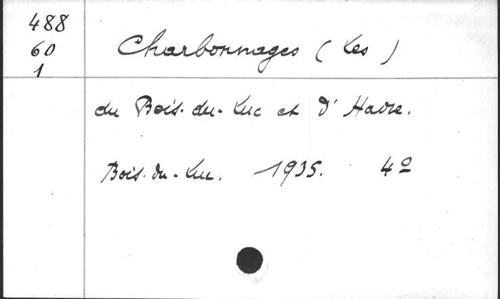 488
60
1
Charbonnages (Les)
du Bois-du-Luc et d'Havre.
Bois-du-Luc. 1935. 4º